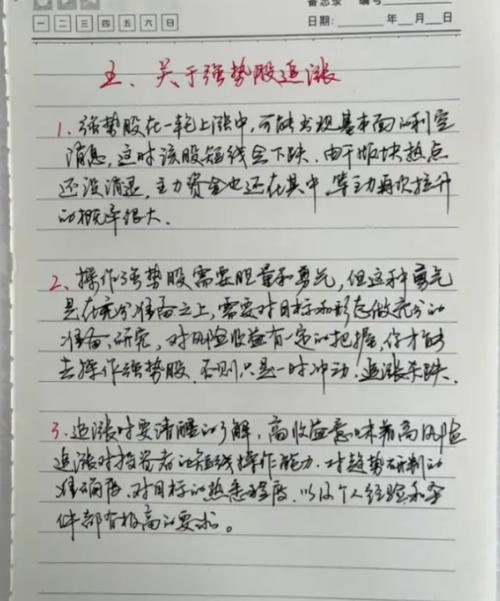 备忘录 编号
一 二 三 四 五 六 日
日期: 年 月 日
五、关于强势股追涨
1、强势股在一轮上涨中,可能出现基本面的利空
消息,这时该股短线会下跌,由于版块热点
还没消退,主力资金也还在其中,等主力再次拉升
的概率很大.
2、操作强势股需要胆量和勇气,但这种勇气
是在充分准备之上,需要对目标和形态做充分的
准备、研究,对风险收益有一定的把握,你才能够
去操作强势股.否则只是一时冲动,追涨杀跌.
3、追涨时要清醒的了解,高收益意味着高风险
追涨对投资者的短线操作能力.对趋势研判的
准确度、对目标的熟悉程度.以及个人经验和条
件都有极高的要求。